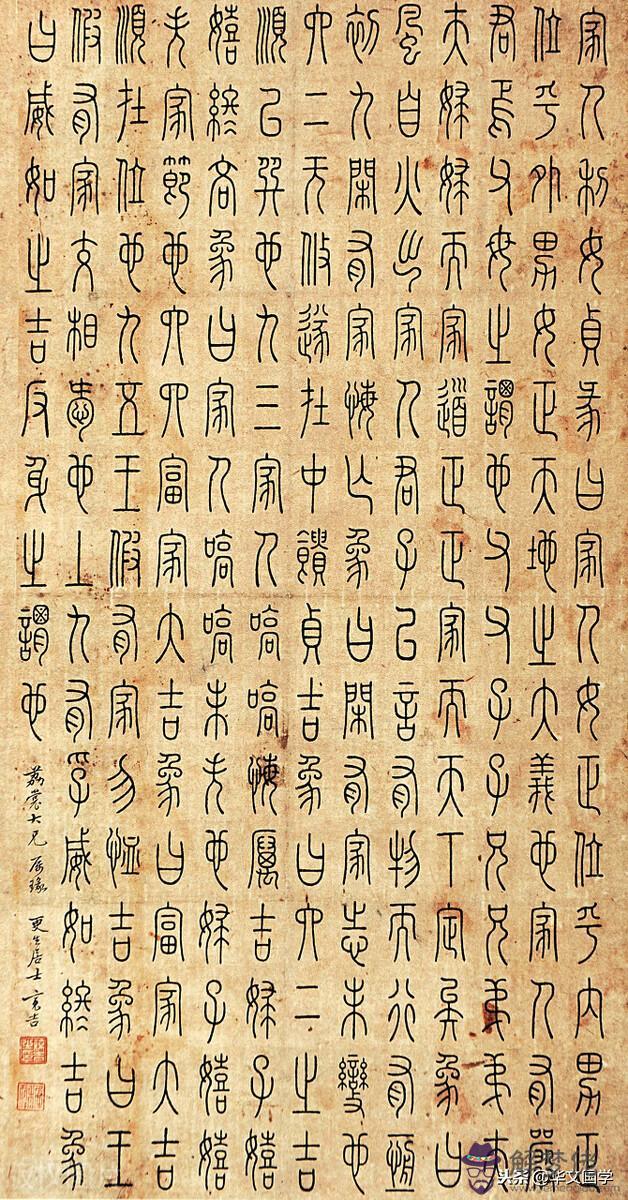 家人利女貞彖曰家人女正位乎內男正
位乎外男女正天地之大義也家人有嚴
君焉父母之謂也父父子子兄兄弟弟夫
夫婦婦而家道正正家而天下定矣象曰
風自火出家人君子以言有物而行有恆
初九閑有家悔亡象曰閑有家志未變也
六二无攸遂在中饋貞吉象曰六二之吉
順以巽也九三家人嗃嗃悔厲吉婦子嬉
嬉終吝象曰家人嗃嗃未失也婦子嬉嬉
失家節也六四富家大吉象曰富家大吉
順在位也九五王假有家勿恤吉象曰王
假有家交相愛也上九有孚威如終吉象
曰威如之吉反身之謂也
荔裳大兄屬 更生居士亮吉
头条@华文国学